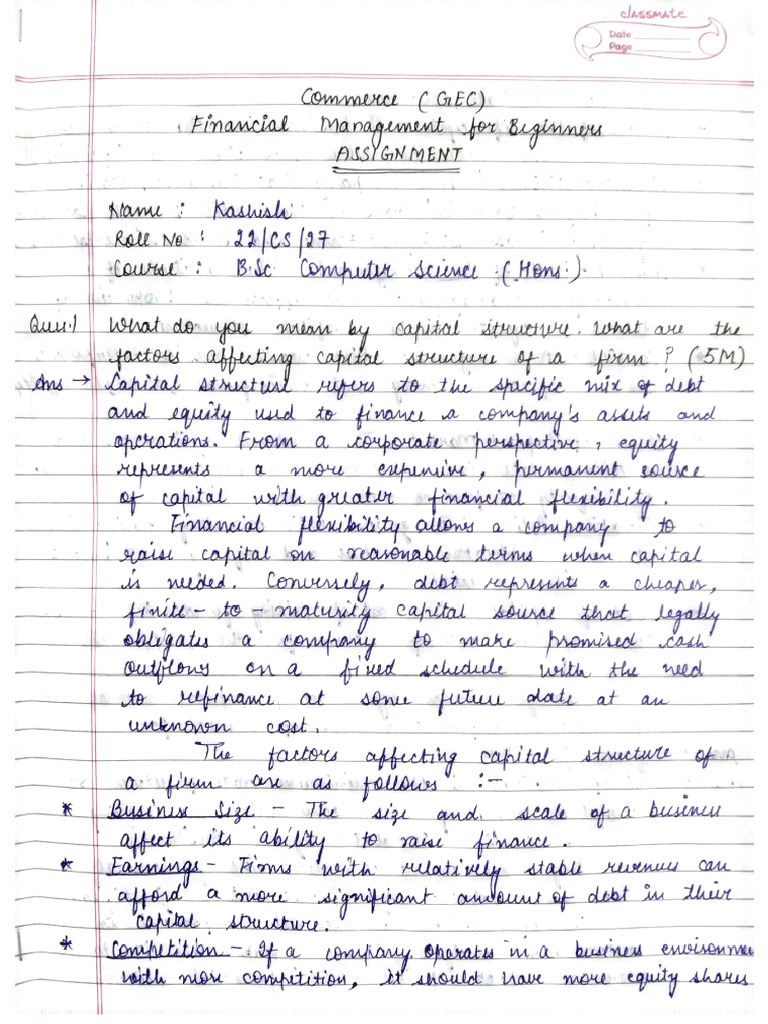 classmate
Date
Page
Commerce (GEC)
Financial Management for Beginners
ASSIGNMENT
Name : Kashish
Roll No : 22/CS/27
Course : B.Sc Computer Science (Hons.)
Ques.1 What do you mean by capital structure. What are the
factors affecting capital structure of a firm? (5M)
Ans → Capital structure refers to the specific mix of debt
and equity used to finance a company's assets and
operations. From a corporate perspective, equity
represents a more expensive, permanent source
of capital with greater financial flexibility.
Financial flexibility allows a company to
raise capital on reasonable terms when capital
is needed. Conversely, debt represents a cheaper,
finite-to-maturity capital source that legally
obligates a company to make promised cash
outflows on a fixed schedule with the need
to refinance at some future date at an
unknown cost.
The factors affecting capital structure of
a firm are as follows :-
* Business Size - The size and scale of a business
affect its ability to raise finance.
* Earnings - Firms with relatively stable revenues can
afford a more significant amount of debt in their
capital structure.
* Competition - If a company operates in a business environme
with more competition, it should have more equity shares